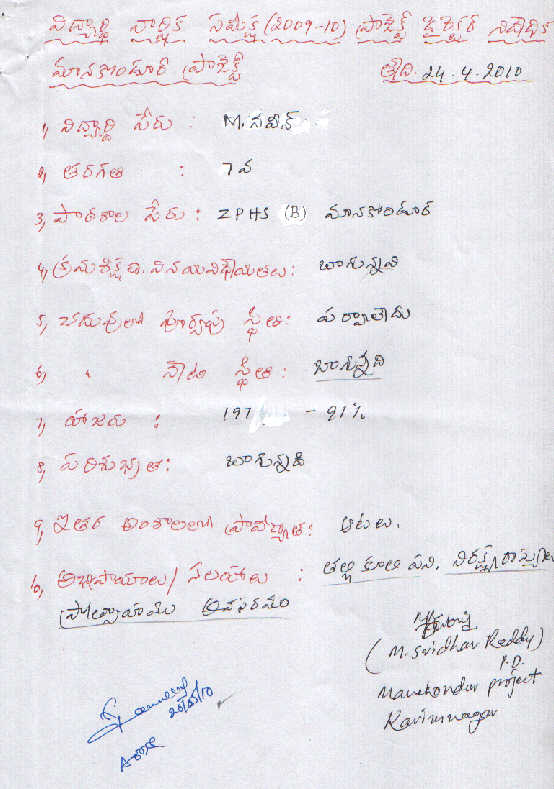 విద్యార్థి వార్షిక సమీక్ష (2009-10) ప్రాజెక్ట్ డైరెక్టర్ నివేదిక
మానకొండూర్ ప్రాజెక్ట్ తేది. 24.4.2010
1, విద్యార్థి పేరు : M. నవీన్
2, తరగతి : 7వ
3, పాఠశాల పేరు : ZPHS (B) మానకొండూర్
4, క్రమశిక్షణ. వినయవిధేయతలు: బాగున్నవి
5, చదువులో పూర్వపు స్థితి: పర్వాలేదు
6, " నేటి స్థితి : బాగున్నది
7, హాజరు : 197 - 91%
8, పరిశుభ్రత: బాగున్నది
9, ఇతర అంశాలలో ప్రావీణ్యత: ఆటలు.
10, అభిప్రాయాలు/ సలహాలు : తల్లి కూలి పని.
ప్రోత్సాహము అవసరం
(M. Sridhar Reddy)
P.D.
Manakondur project
Karimnagar